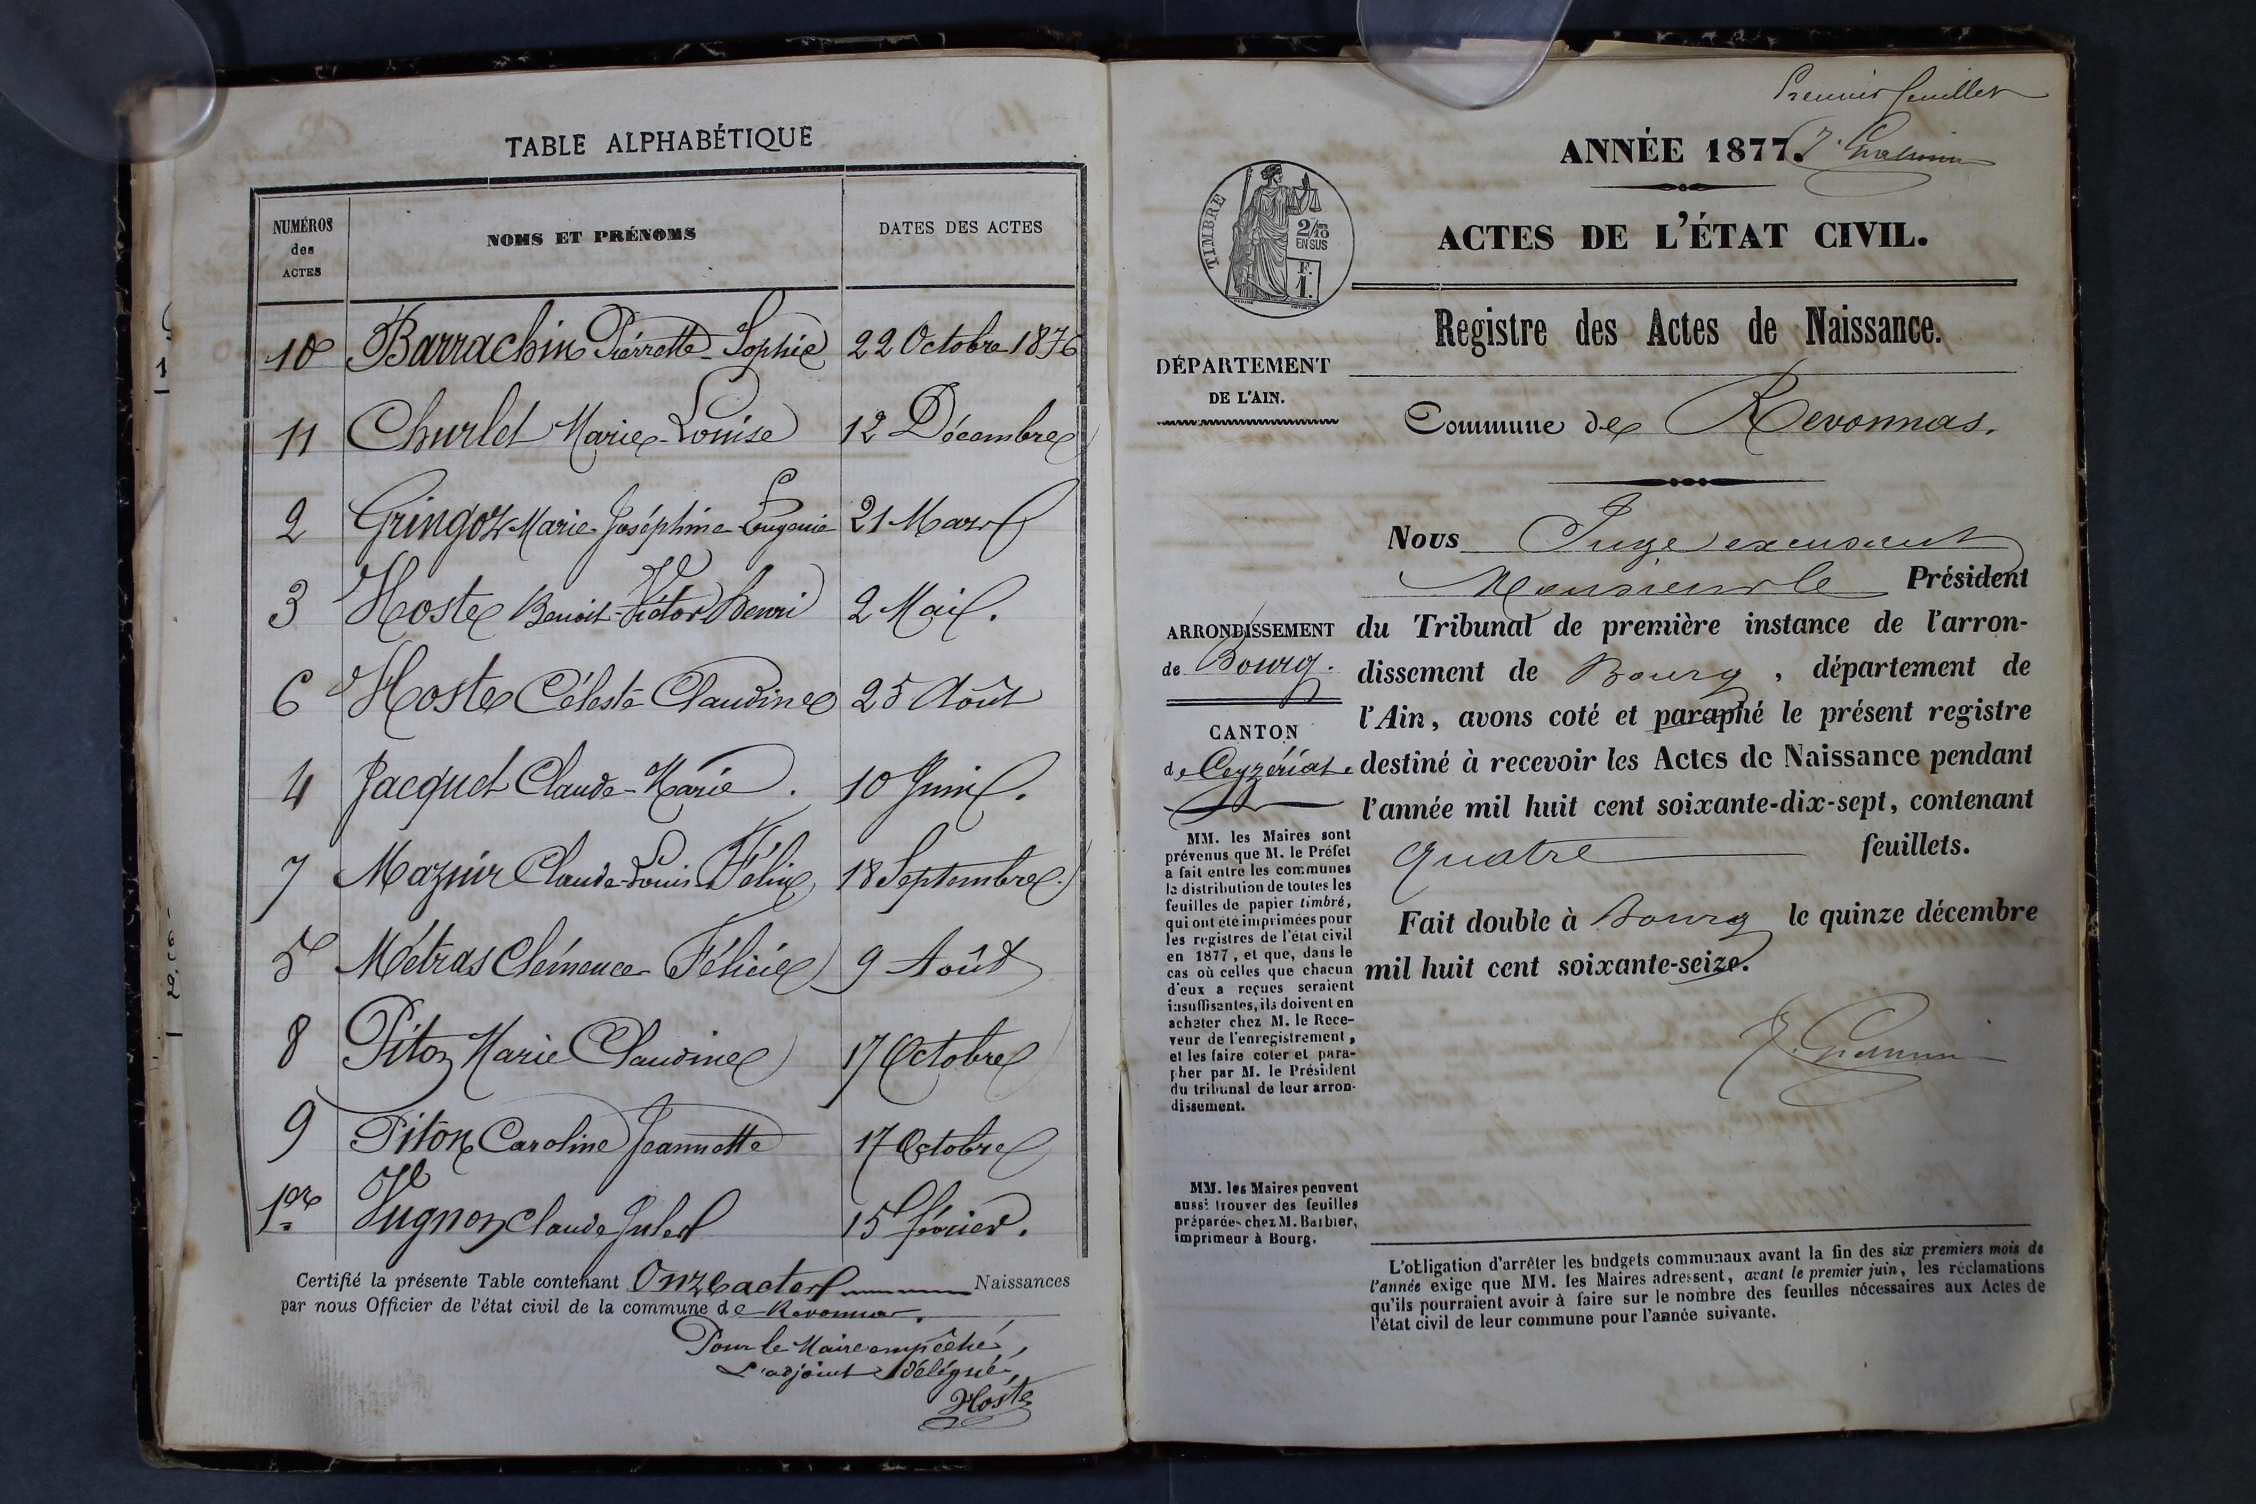 TABLE ALPHABÉTIQUE
NUMÉROS des ACTES NOMS ET PRÉNOMS DATES DES ACTES
10 Barrachin Pierrette-Sophie 22 Octobre 1876
11 Churlet Marie-Louise 12 Décembre
2 Gringoz Marie-Joséphine-Eugenie 21 Mars
3 Hoste Benoit-Victor Henri 2 Mai.
6 Hoste Céleste-Claudine 25 Août
4 Jacquet Claude-Marie. 10 Juin.
7 Mazuir Claude-Louis-Félix 18 Septembre.
5 Métras Clémence-Félicie 9 Août
8 Piton Marie Claudine 17 Octobre
9 Piton Caroline Jeannette 17 Octobre
1er Vugnon Claude Jules 15 février.
Certifié la présente Table contenant Onze actes Naissances
par nous Officier de l'état civil de la commune de Revonnas.
Pour le Maire empêché,
L'adjoint délégué,
Hoste
Premier feuillet
ANNÉE 1877.
TIMBRE
2/10
EN SUS
F.
1.
ACTES DE L'ÉTAT CIVIL.
Registre des Actes de Naissance.
DÉPARTEMENT
DE L'AIN.
Commune de Revonnas.
Nous Juge excusant
Monsieur le Président
du Tribunal de première instance de l'arron-
dissement de Bourg, département de
l'Ain, avons coté et paraphé le présent registre
destiné à recevoir les Actes de Naissance pendant
l'année mil huit cent soixante-dix-sept, contenant
quatre feuillets.
Fait double à Bourg le quinze décembre
mil huit cent soixante-seize.
ARRONDISSEMENT
de Bourg.
CANTON
de Ceyzériat.
MM. les Maires sont
prévenus que M. le Préfet
a fait entre les communes
la distribution de toutes les
feuilles de papier timbré,
qui ont été imprimées pour
les registres de l'état civil
en 1877, et que, dans le
cas où celles que chacun
d'eux a reçues seraient
insuffisantes, ils doivent en
acheter chez M. le Rece-
veur de l'enregistrement,
et les faire coter et para-
pher par M. le Président
du tribunal de leur arron-
dissement.
MM. les Maires peuvent
aussi trouver des feuilles
préparées chez M. Barbier,
imprimeur à Bourg.
L'obligation d'arrêter les budgets communaux avant la fin des six premiers mois de
l'année exige que MM. les Maires adressent, avant le premier juin, les réclamations
qu'ils pourraient avoir à faire sur le nombre des feuilles nécessaires aux Actes de
l'état civil de leur commune pour l'année suivante.